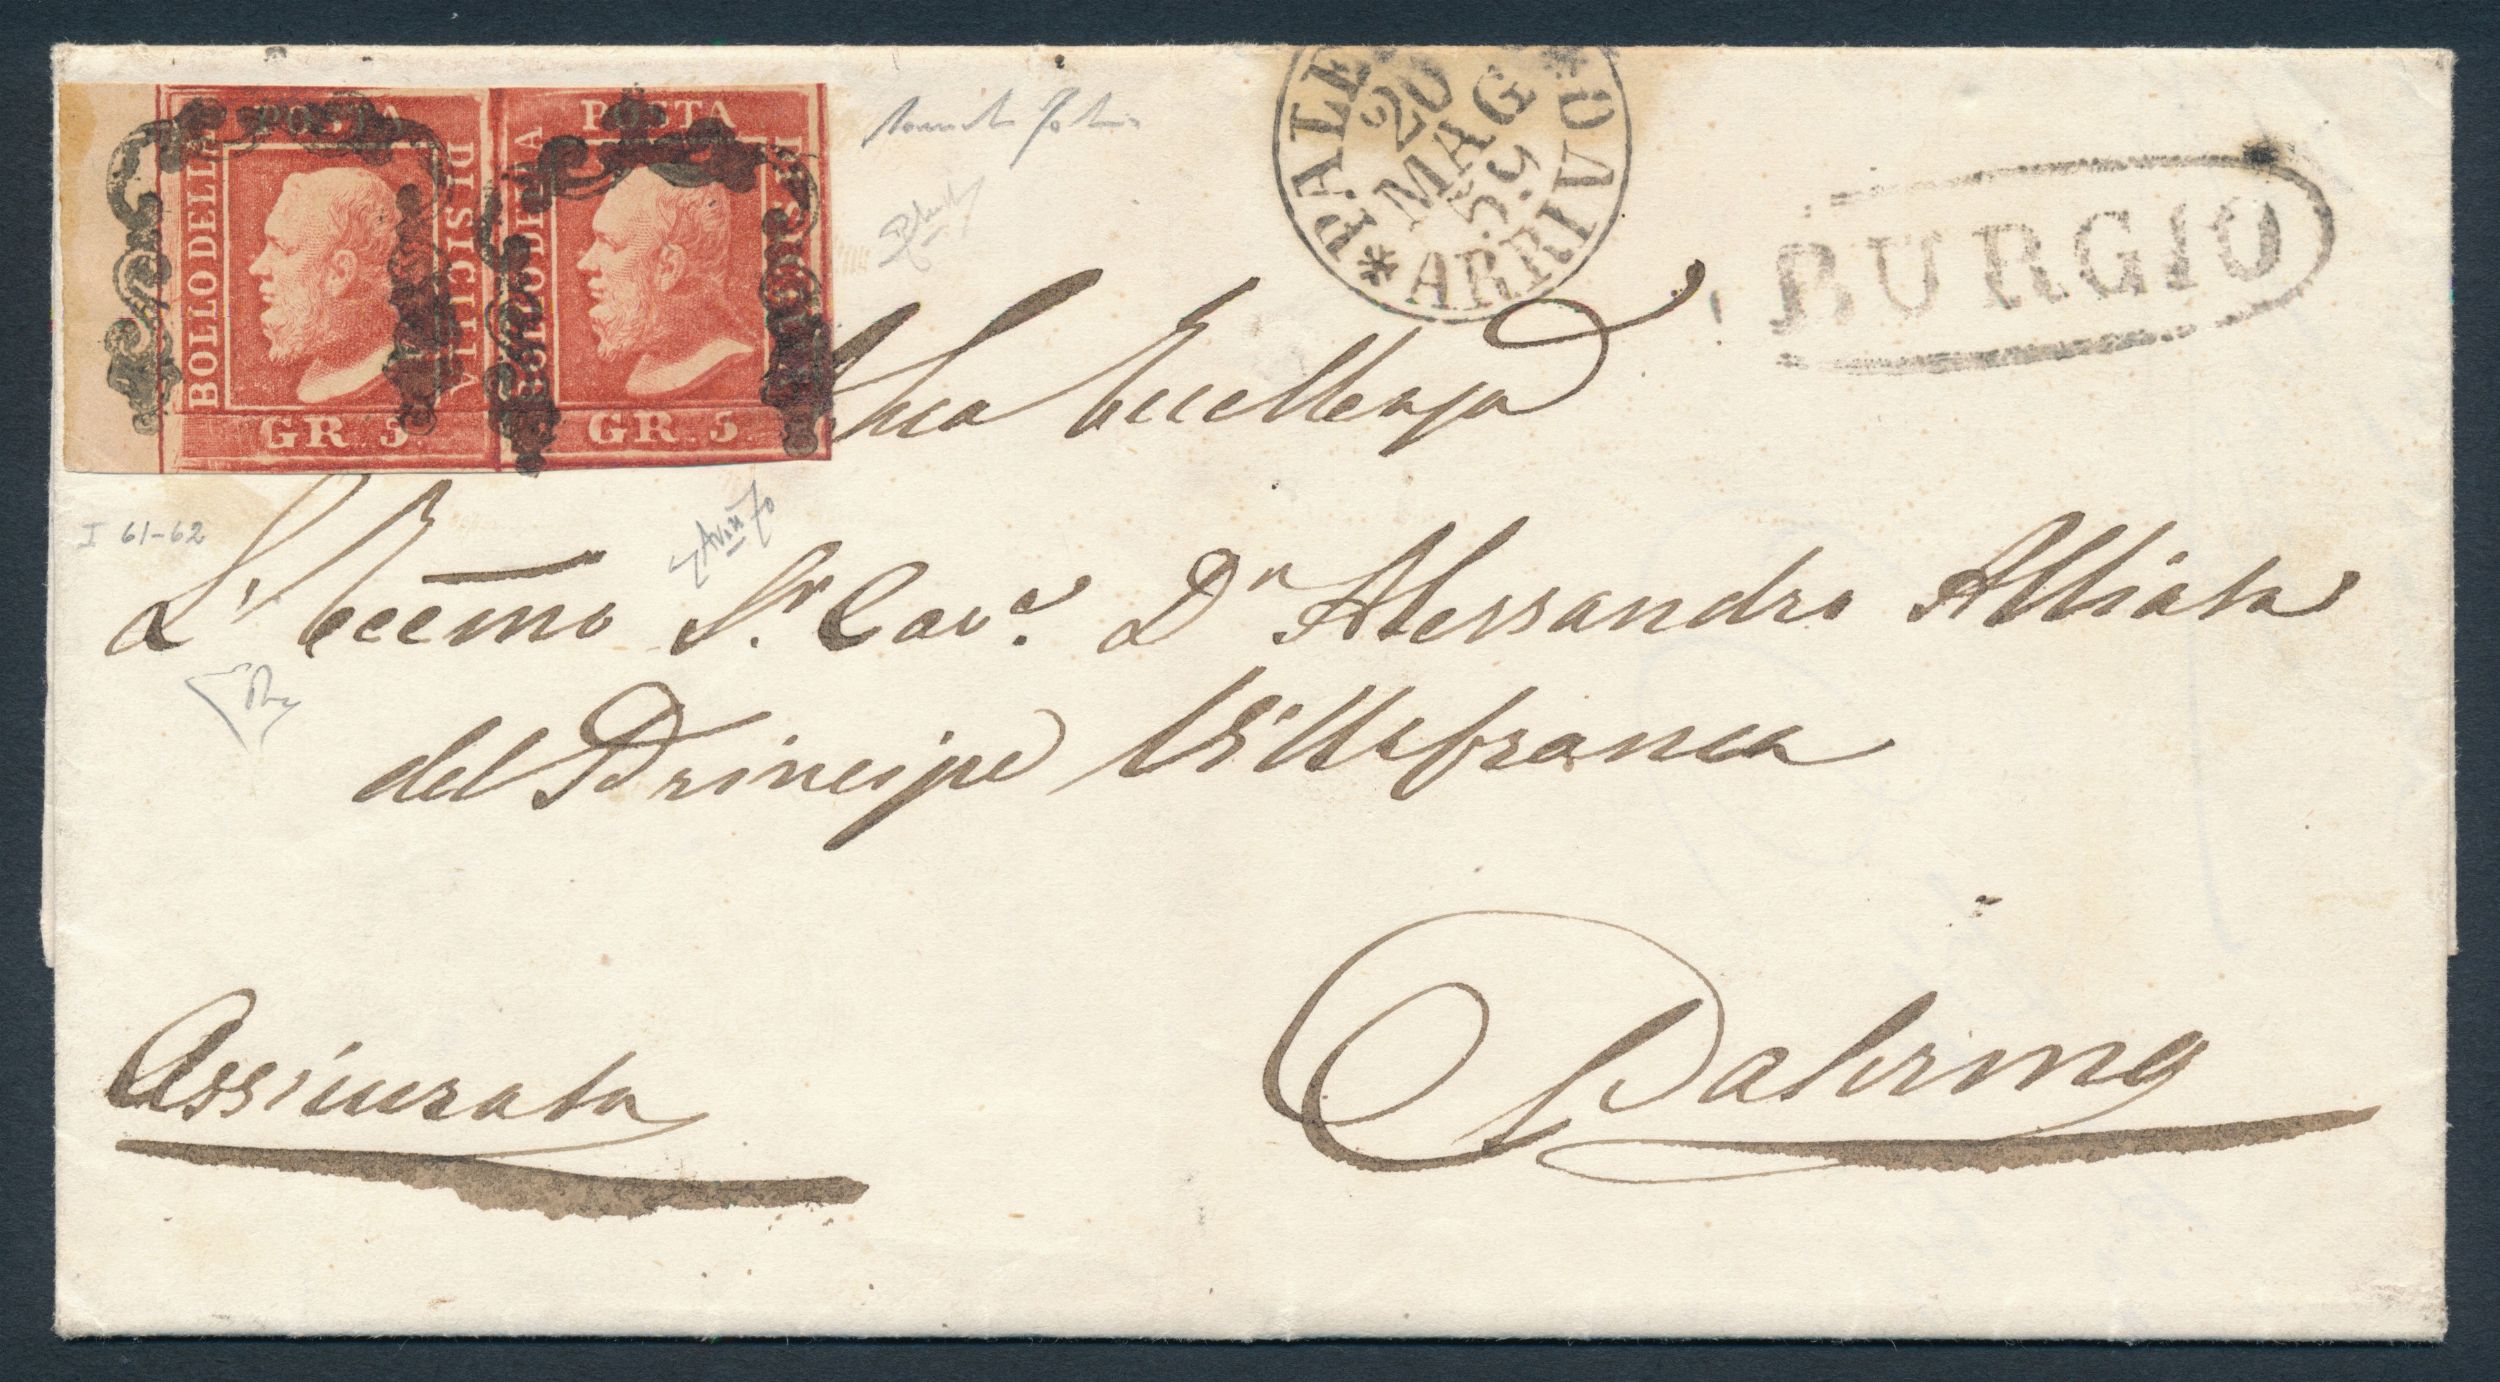 BOLLO DELLA POSTA DI SICILIA
GR. 5
BOLLO DELLA POSTA DI SICILIA
GR. 5
PALE O
20
MAG
59
ARRIVO
BURGIO
Sua Eccellenza
I 61-62
L'Eccēmo Sr. Cave. Dn Alessandro Alliata
del Principe Villafranca
Assicurata
Palermo